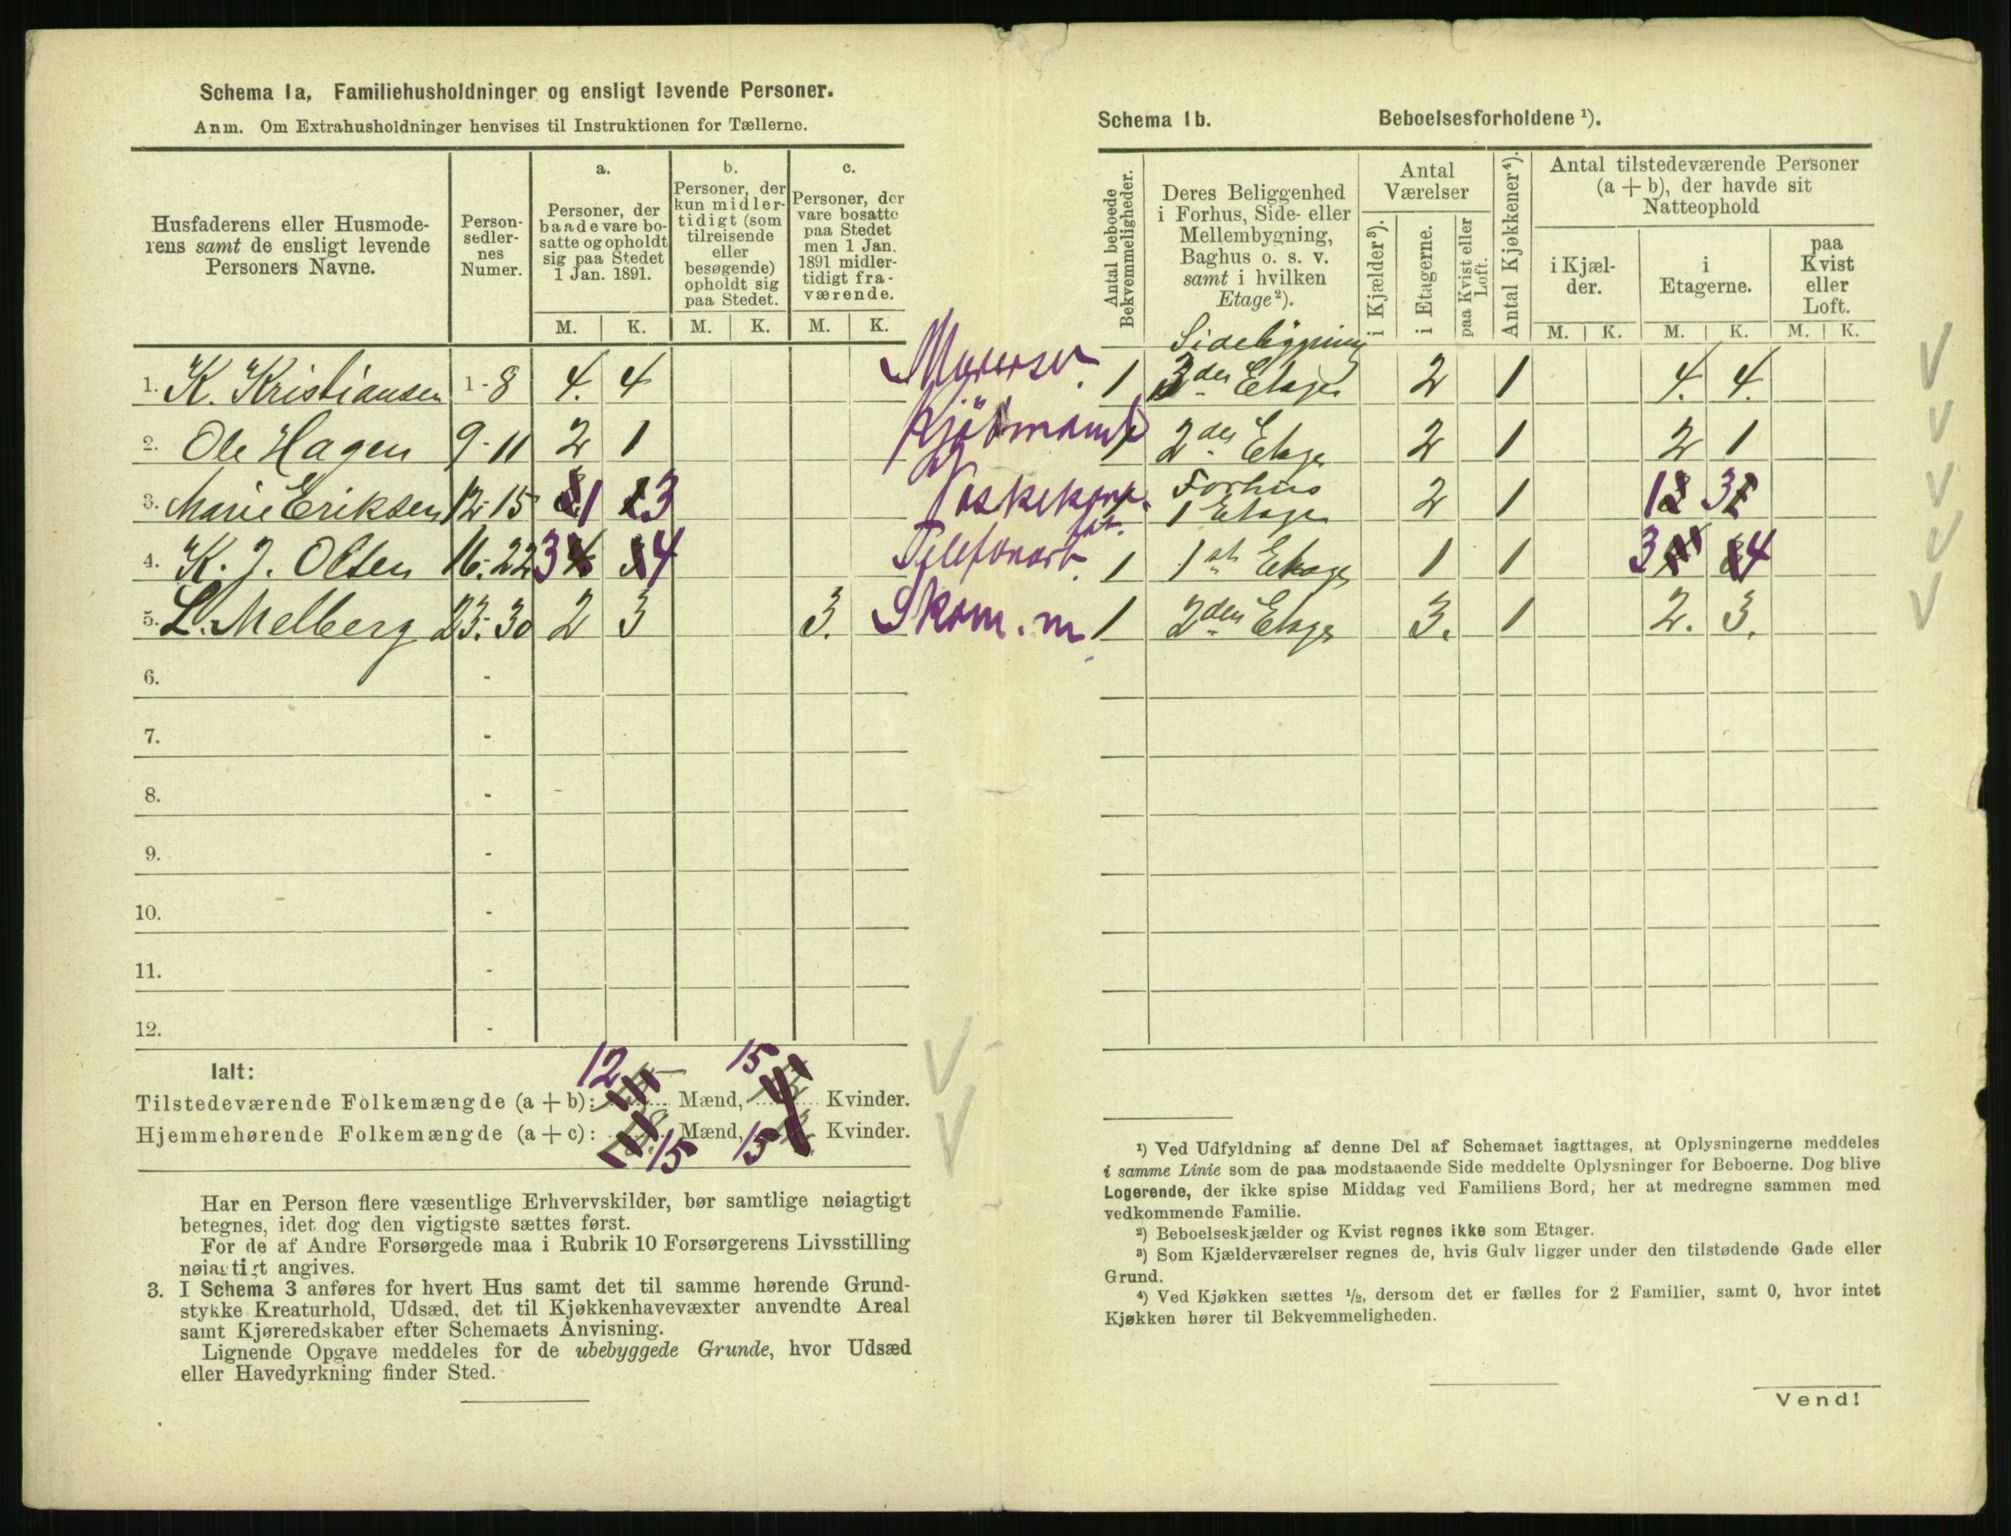 Schema 1a, Familiehusholdninger og ensligt levende Personer.
Anm. Om Extrahusholdninger henvises til Instruktionen for Tællerne.
Husfaderens eller Husmode-
rens samt de ensligt levende
Personers Navne.
Person-
sedler-
nes
Numer.
a.
Personer, der
baade vare bo-
satte og opholdt
sig paa Stedet
1 Jan. 1891.
b.
Personer, der
kun midler-
tidigt (som
tilreisende
eller
besøgende)
opholdt sig
paa Stedet.
c.
Personer, der
vare bosatte
paa Stedet
men 1 Jan.
1891 midler-
tidigt fra-
værende.
M. K. M. K. M. K.
1. K. Kristiansen 1-8 4. 4 Murersv.
2. Ole Hagen 9-11 2 1
3. Marie Eriksen 12-15 1 3
4. K. J. Olsen 16-22 3 4 Telefonarb.
5. L. Melberg 23-30 2 3 3. Skom. m
6. -
7. -
8. -
9. -
10. -
11. -
12. -
Ialt:
12 15
Tilstedeværende Folkemængde (a + b): Mænd, Kvinder.
Hjemmehørende Folkemængde (a + c): Mænd, Kvinder.
15 15
Har en Person flere væsentlige Erhvervskilder, bør samtlige nøiagtigt
betegnes, idet dog den vigtigste sættes først.
For de af Andre Forsørgede maa i Rubrik 10 Forsørgerens Livsstilling
nøiagtigt angives.
3. I Schema 3 anføres for hvert Hus samt det til samme hørende Grund-
stykke Kreaturhold, Udsæd, det til Kjøkkenhavevæxter anvendte Areal
samt Kjøreredskaber efter Schemaets Anvisning.
Lignende Opgave meddeles for de ubebyggede Grunde, hvor Udsæd
eller Havedyrkning finder Sted.
Schema 1b. Beboelsesforholdene ¹).
Antal beboede
Bekvemmeligheder.
Deres Beliggenhed
i Forhus, Side- eller
Mellembygning,
Baghus o. s. v.
samt i hvilken
Etage ²).
Antal
Værelser
i Kjælder ³).
i Etagerne.
paa Kvist eller
Loft.
Antal Kjøkkener ⁴).
Antal tilstedeværende Personer
(a + b), der havde sit
Natteophold
i Kjæl-
der.
i
Etagerne.
paa
Kvist
eller
Loft.
M. K. M. K. M. K.
Sidebygning
1 3den Etage 2 1 4. 4.
1 2den Etage 2 1 2 1
Forhus
1 1 Etage 2 1 1 3
1 1st Etage 1 1 3 4
1 2den Etage 3. 1 2. 3.
¹) Ved Udfyldning af denne Del af Schemaet iagttages, at Oplysningerne meddeles
i samme Linie som de paa modstaaende Side meddelte Oplysninger for Beboerne. Dog blive
Logerende, der ikke spise Middag ved Familiens Bord, her at medregne sammen med
vedkommende Familie.
²) Beboelseskjælder og Kvist regnes ikke som Etager.
³) Som Kjælderværelser regnes de, hvis Gulv ligger under den tilstødende Gade eller
Grund.
⁴) Ved Kjøkken sættes ½, dersom det er fælles for 2 Familier, samt 0, hvor intet
Kjøkken hører til Bekvemmeligheden.
Vend!